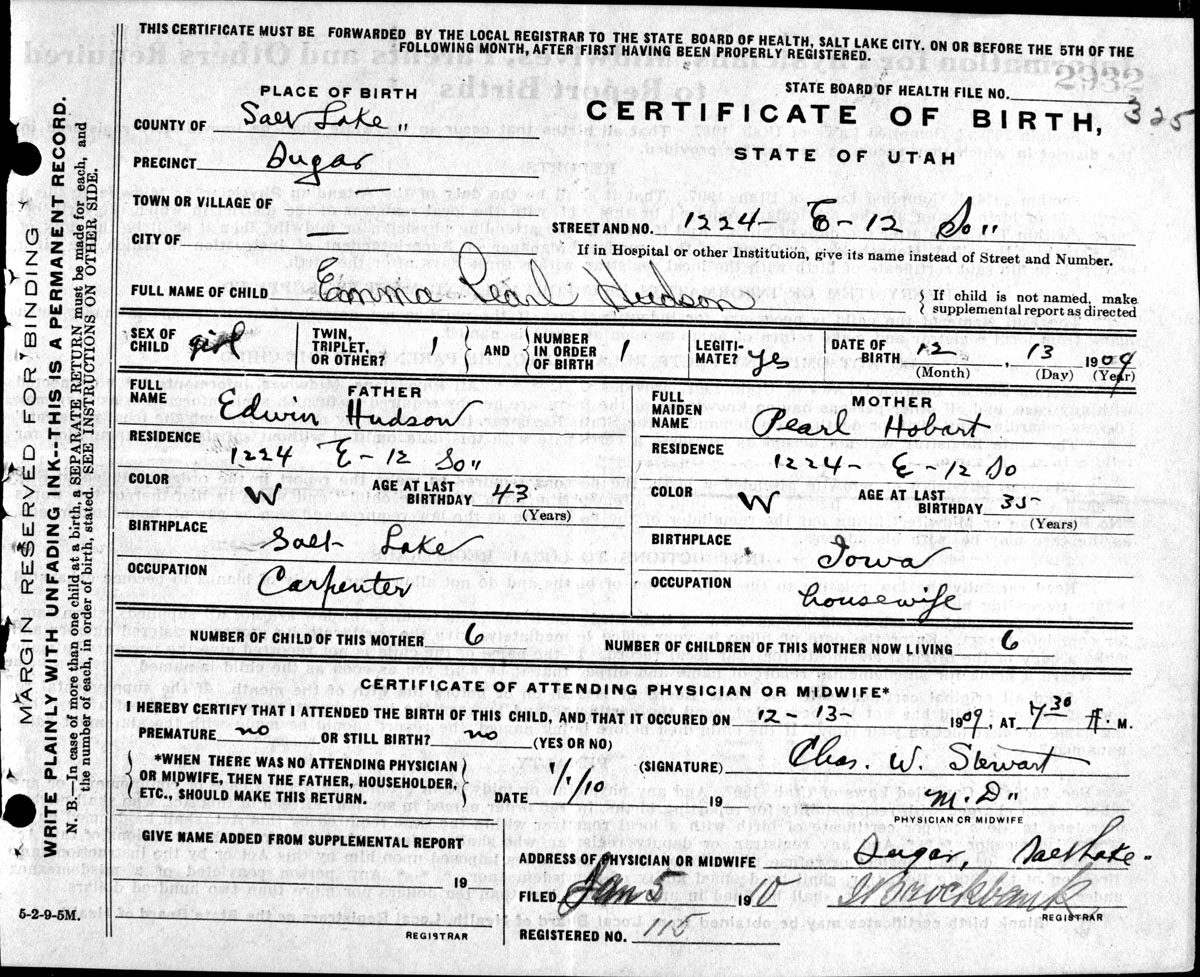 THIS CERTIFICATE MUST BE FORWARDED BY THE LOCAL REGISTRAR TO THE STATE BOARD OF HEALTH, SALT LAKE CITY. ON OR BEFORE THE 5TH OF THE
FOLLOWING MONTH, AFTER FIRST HAVING BEEN PROPERLY REGISTERED.
MARGIN RESERVED FOR BINDING
WRITE PLAINLY WITH UNFADING INK--THIS IS A PERMANENT RECORD.
N. B.—In case of more than one child at a birth, a SEPARATE RETURN must be made for each, and
the number of each, in order of birth, stated. SEE INSTRUCTIONS ON OTHER SIDE.
STATE BOARD OF HEALTH FILE NO. 325
CERTIFICATE OF BIRTH,
STATE OF UTAH
PLACE OF BIRTH
COUNTY OF Salt Lake"
PRECINCT Sugar
TOWN OR VILLAGE OF
CITY OF
STREET AND NO. 1224- E-12 So"
If in Hospital or other Institution, give its name instead of Street and Number.
FULL NAME OF CHILD Emma Pearl Hudson
If child is not named, make
supplemental report as directed
SEX OF CHILD girl
TWIN, TRIPLET, OR OTHER? 1
AND NUMBER IN ORDER OF BIRTH 1
LEGITI- MATE? yes
DATE OF BIRTH 12 , 13 1909
(Month) (Day) (Year)
FATHER
FULL NAME Edwin Hudson
RESIDENCE 1224 E-12 So"
COLOR W AGE AT LAST BIRTHDAY 43
(Years)
BIRTHPLACE Salt Lake
OCCUPATION Carpenter
MOTHER
FULL MAIDEN NAME Pearl Hobart
RESIDENCE 1224- E-12 So
COLOR W AGE AT LAST BIRTHDAY 35
(Years)
BIRTHPLACE Iowa
OCCUPATION housewife
NUMBER OF CHILD OF THIS MOTHER 6 NUMBER OF CHILDREN OF THIS MOTHER NOW LIVING 6
CERTIFICATE OF ATTENDING PHYSICIAN OR MIDWIFE*
I HEREBY CERTIFY THAT I ATTENDED THE BIRTH OF THIS CHILD, AND THAT IT OCCURED ON 12-13- 1909, AT 7 30 M.
PREMATURE no OR STILL BIRTH? no (YES OR NO)
*WHEN THERE WAS NO ATTENDING PHYSICIAN
OR MIDWIFE, THEN THE FATHER, HOUSEHOLDER,
ETC., SHOULD MAKE THIS RETURN.
(SIGNATURE) Chas. W. Stewart
DATE 1/1/10 19 M.D"
PHYSICIAN OR MIDWIFE
GIVE NAME ADDED FROM SUPPLEMENTAL REPORT
19
REGISTRAR
ADDRESS OF PHYSICIAN OR MIDWIFE Sugar Salt Lake"
FILED Jan 5 1910 Brockbank
REGISTRAR
REGISTERED NO. 115
5-2-9-5M.